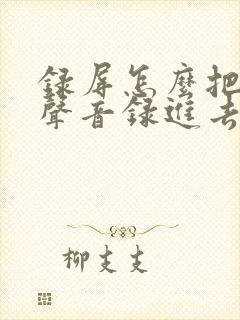 録屏怎麼把
聲音録進去
柳支支